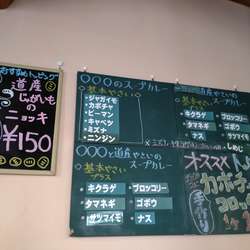 おすすめトッピング
道産
じゃがいも
の
ニョッキ
¥150
〇〇〇のスープカレー
基本やさい
・ジャガイモ
・カボチャ
・ピーマン
・キャベツ
・ミズナ
・ニンジン
道産やさいの
スープカレー
基本やさい
プラス
・キクラゲ
・ブロッコリー
・タマネギ
・ゴボウ
・ナス
しめじ
〇〇〇と道産やさいの
スープカレー
基本やさい
プラス
・キクラゲ
・ブロッコリー
・タマネギ
・ゴボウ
・サツマイモ
・ナス
オススメ
カボチャ
コロッ